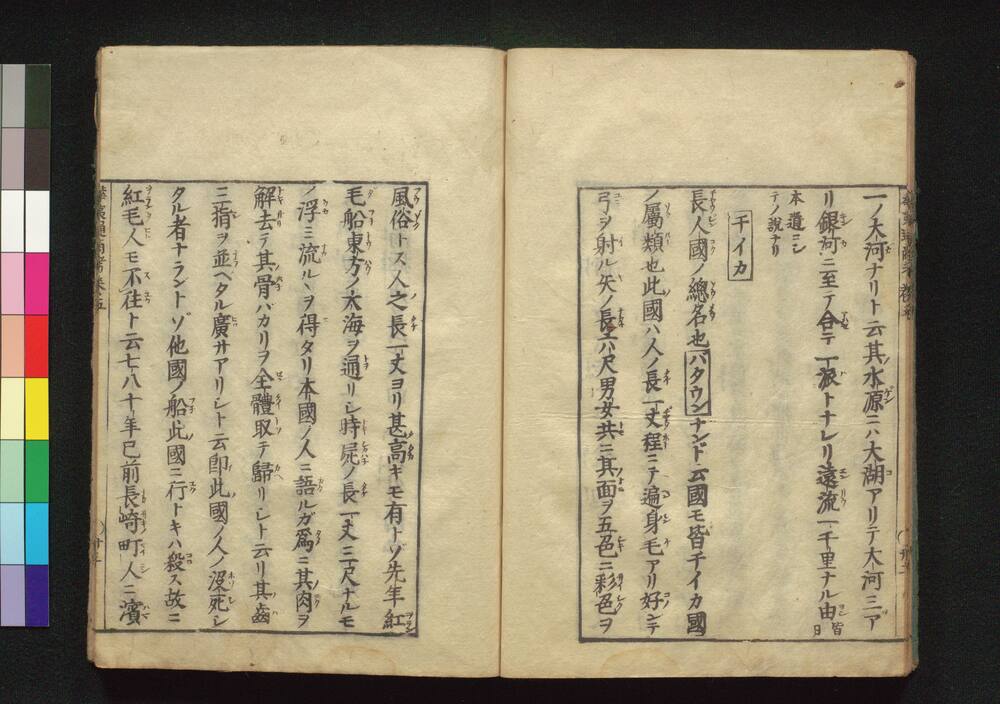 一ノ大河ナリト云其水源ニハ大湖アリテ大河三ア
リ銀河ニ至テ合テ一派トナレリ遠流一千里ナル由皆日
本道ニシ
テノ説ナリ
チイカ
長人國ノ總名也パタウンナンド云國モ皆チイカ國
ノ屬類也此國ハ人ノ長一丈程ニテ遍身毛アリ好ンテ
弓ヲ射ル矢ノ長六尺男女共ニ其面ヲ五色ニ彩色ヲ
風俗トス人之長一丈ヨリ甚高キモ有トゾ先年紅
毛船東方ノ大海ヲ通リシ時屍ノ長一丈三尺ナルモ
ノ浮ミ流ルヽヲ得タリ本國ノ人ニ語ルガ爲ニ其肉ヲ
解去テ其骨バカリヲ全體取テ歸リシト云リ其齒
三指ヲ並ベタル廣サアリシト云即此國ノ人ノ沒死シ
タル者ナラントゾ他國ノ船此國ニ行トキハ殺ス故ニ
紅毛人モ不往ト云七八十年已前長崎町人ニ濱
華夷通商考卷五